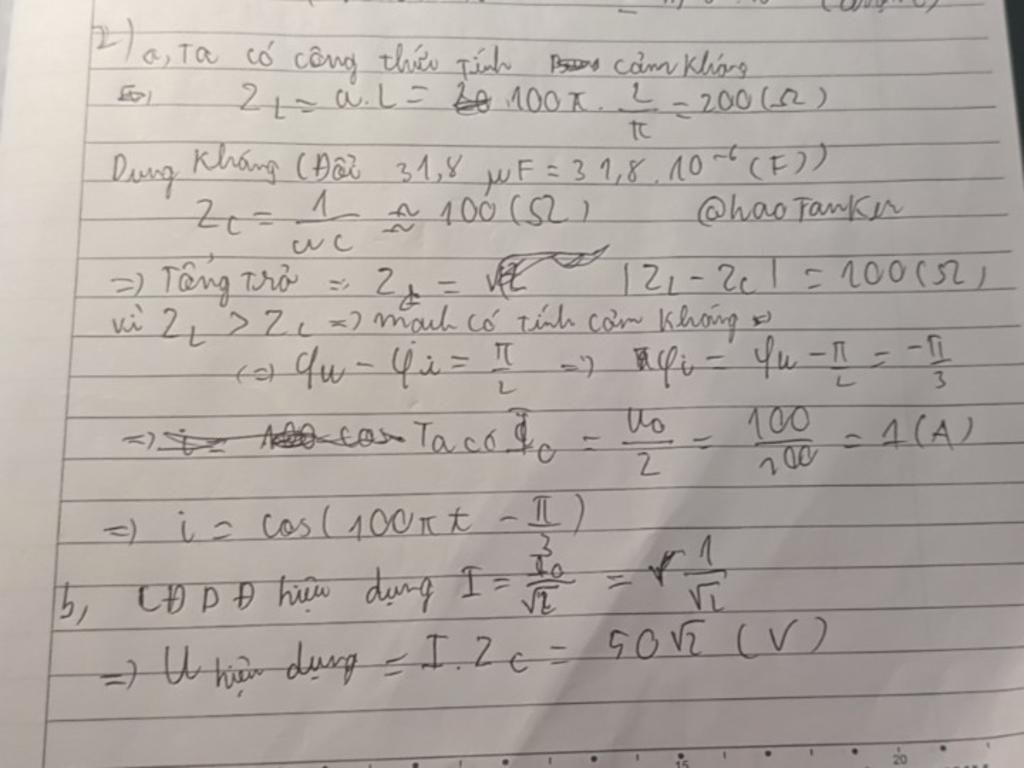 2) a, Ta có công thức tính cảm kháng
Z_L = ω.L = 100π . 2/π = 200 (Ω)
Dung kháng (Đổi 31,8 μF = 31,8 . 10^-6 (F))
Z_C = 1/ωC ≈ 100 (Ω) @haoTanKer
=> Tổng trở = Z = |Z_L - Z_C| = 100 (Ω)
vì Z_L > Z_C => mạch có tính cảm kháng =>
<=> φu - φi = π/2 => φi = φu - π/2 = -π/3
=> Ta có I_0 = U_0/Z = 100/100 = 1 (A)
=> i = cos(100πt - π/3)
b, CĐDĐ hiệu dụng I = I_0/√2 = 1/√2
=> U hiệu dụng = I.Z_C = 50√2 (V)
15 20